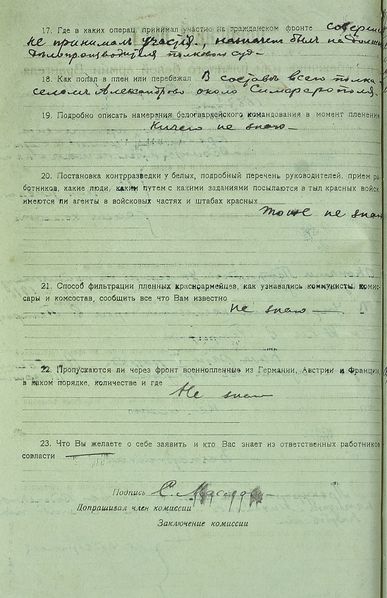 17. Где в каких операц принимал участие на гражданском фронте
не принимал участія, назначен был
делопроизводителя полкового суд-
18. Как попал в плен или перебежал В составе всего полка
около Симферополя
19. Подробно описать намерения белогвардейского командования в момент пленения
Ничего не знаю
20. Постановка контрразведки у белых, подробный перечень руководителей, прием ра
ботников, какие люди, каким путем с какими заданиями посылаются в тыл красных войск
имеются ли агенты в войсковых частях и штабах красных
тоже не знаю
21. Способ фильтрации пленных красноармейцев, как узнавались коммунисты, комис-
сары и комсостав, сообщить все что Вам известно
не знаю
22. Пропускаются ли через фронт военнопленные из Германии, Австрии и Франции
в каком порядке, количестве и где
Не знаю
23. Что Вы желаете о себе заявить и кто Вас знает из ответственных работников
совласти
Подпись С.
Допрашивал член комиссии
Заключение комиссии